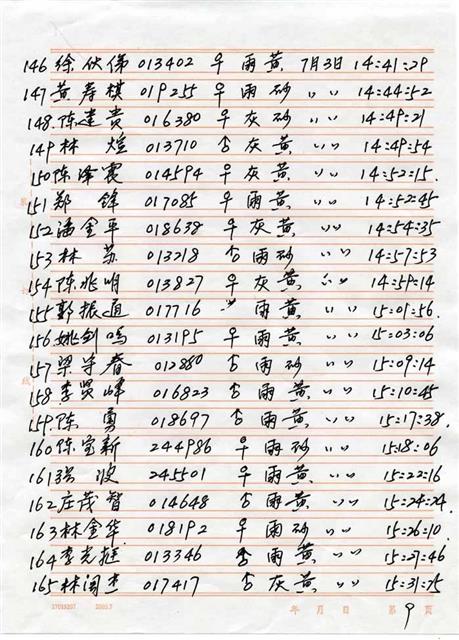 146 徐伏俤 013402 早 雨黄 7月3日 14:41:29
147 黄寿棋 019255 早 雨砂 〃 〃 14:44:52
148 陈建贵 016380 早 灰砂 〃 〃 14:49:21
149 林煌 013710 㕣 灰黄 〃 〃 14:49:54
150 陈泽震 014594 早 灰黄 〃 〃 14:52:15
151 郑锋 017085 早 雨黄 〃 〃 14:52:45
152 潘金平 018638 早 灰黄 〃 〃 14:54:35
153 林苏 013218 㕣 雨砂 〃 〃 14:57:53
154 陈兆明 013827 早 灰黄 〃 〃 14:59:14
155 郭振通 017716 〃 雨黄 〃 〃 15:01:56
156 姚剑鸣 013195 早 雨黄 〃 〃 15:03:06
157 梁守春 012880 㕣 雨砂 〃 〃 15:09:14
158 李贤峰 016823 㕣 雨黄 〃 〃 15:10:45
159 陈勇 018697 㕣 雨黄 〃 〃 15:17:38
160 陈宝新 244986 早 雨砂 〃 〃 15:18:06
161 波 245501 早 雨黄 〃 〃 15:22:16
162 庄茂智 014648 㕣 雨黄 〃 〃 15:24:24
163 林金华 018192 早 雨砂 〃 〃 15:26:10
164 李光挺 013346 㕣 雨黄 〃 〃 15:27:46
165 林闽杰 017417 㕣 灰黄 〃 〃 15:31:75
2005.7 年 月 日 第 9 页